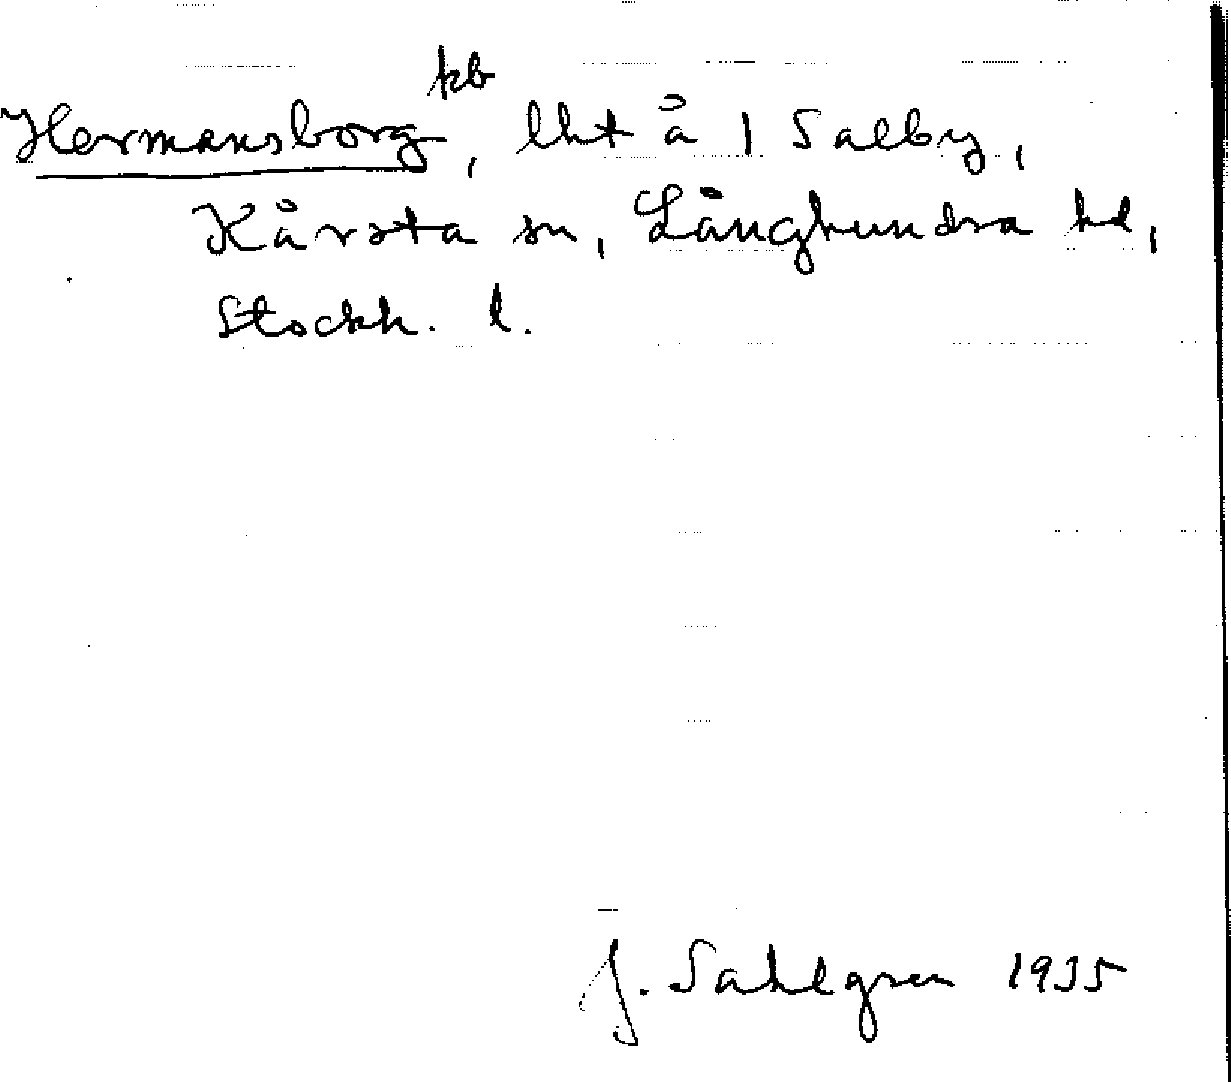 Hermansborg kb, lht å 1 Salby,
Kårsta sn, Långhundra hd,
Stockh. l.
J. Sahlgren 1935